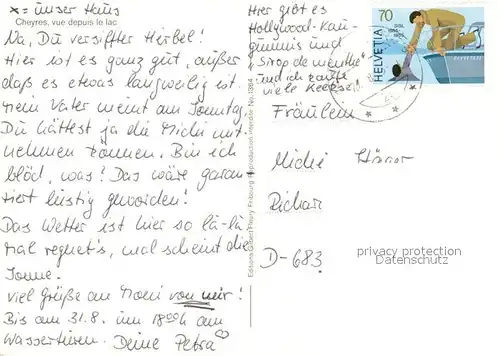 x = unser Haus
Cheyres, vue depuis le lac
Na, Du versiffter Herbel!
Hier ist es ganz gut, außer
daß es etwas langweilig ist.
Mein Vater meint am Sonntag,
Du hättest ja die Michi mit
nehmen können. Bin ich
blöd, was! Das wäre garan
tiert lustig geworden!
Das Wetter ist hier so la-la
mal regnet's, mal scheint die
Sonne.
Viel Grüße an Moni von mir!
Bis am 31.8. um 18⁰⁰h am
Wassertieren. Deine Petra
Editions Robert Fleury Fribourg Reproduction interdite No. 1084
Hier gibt es
Hollywood-Kau-
gummis und
"Sirop de menthe"
und ich kaufte
viele Keekse!
70
HELVETIA
Fräulein
Michi
D-683
privacy protection
Datenschutz